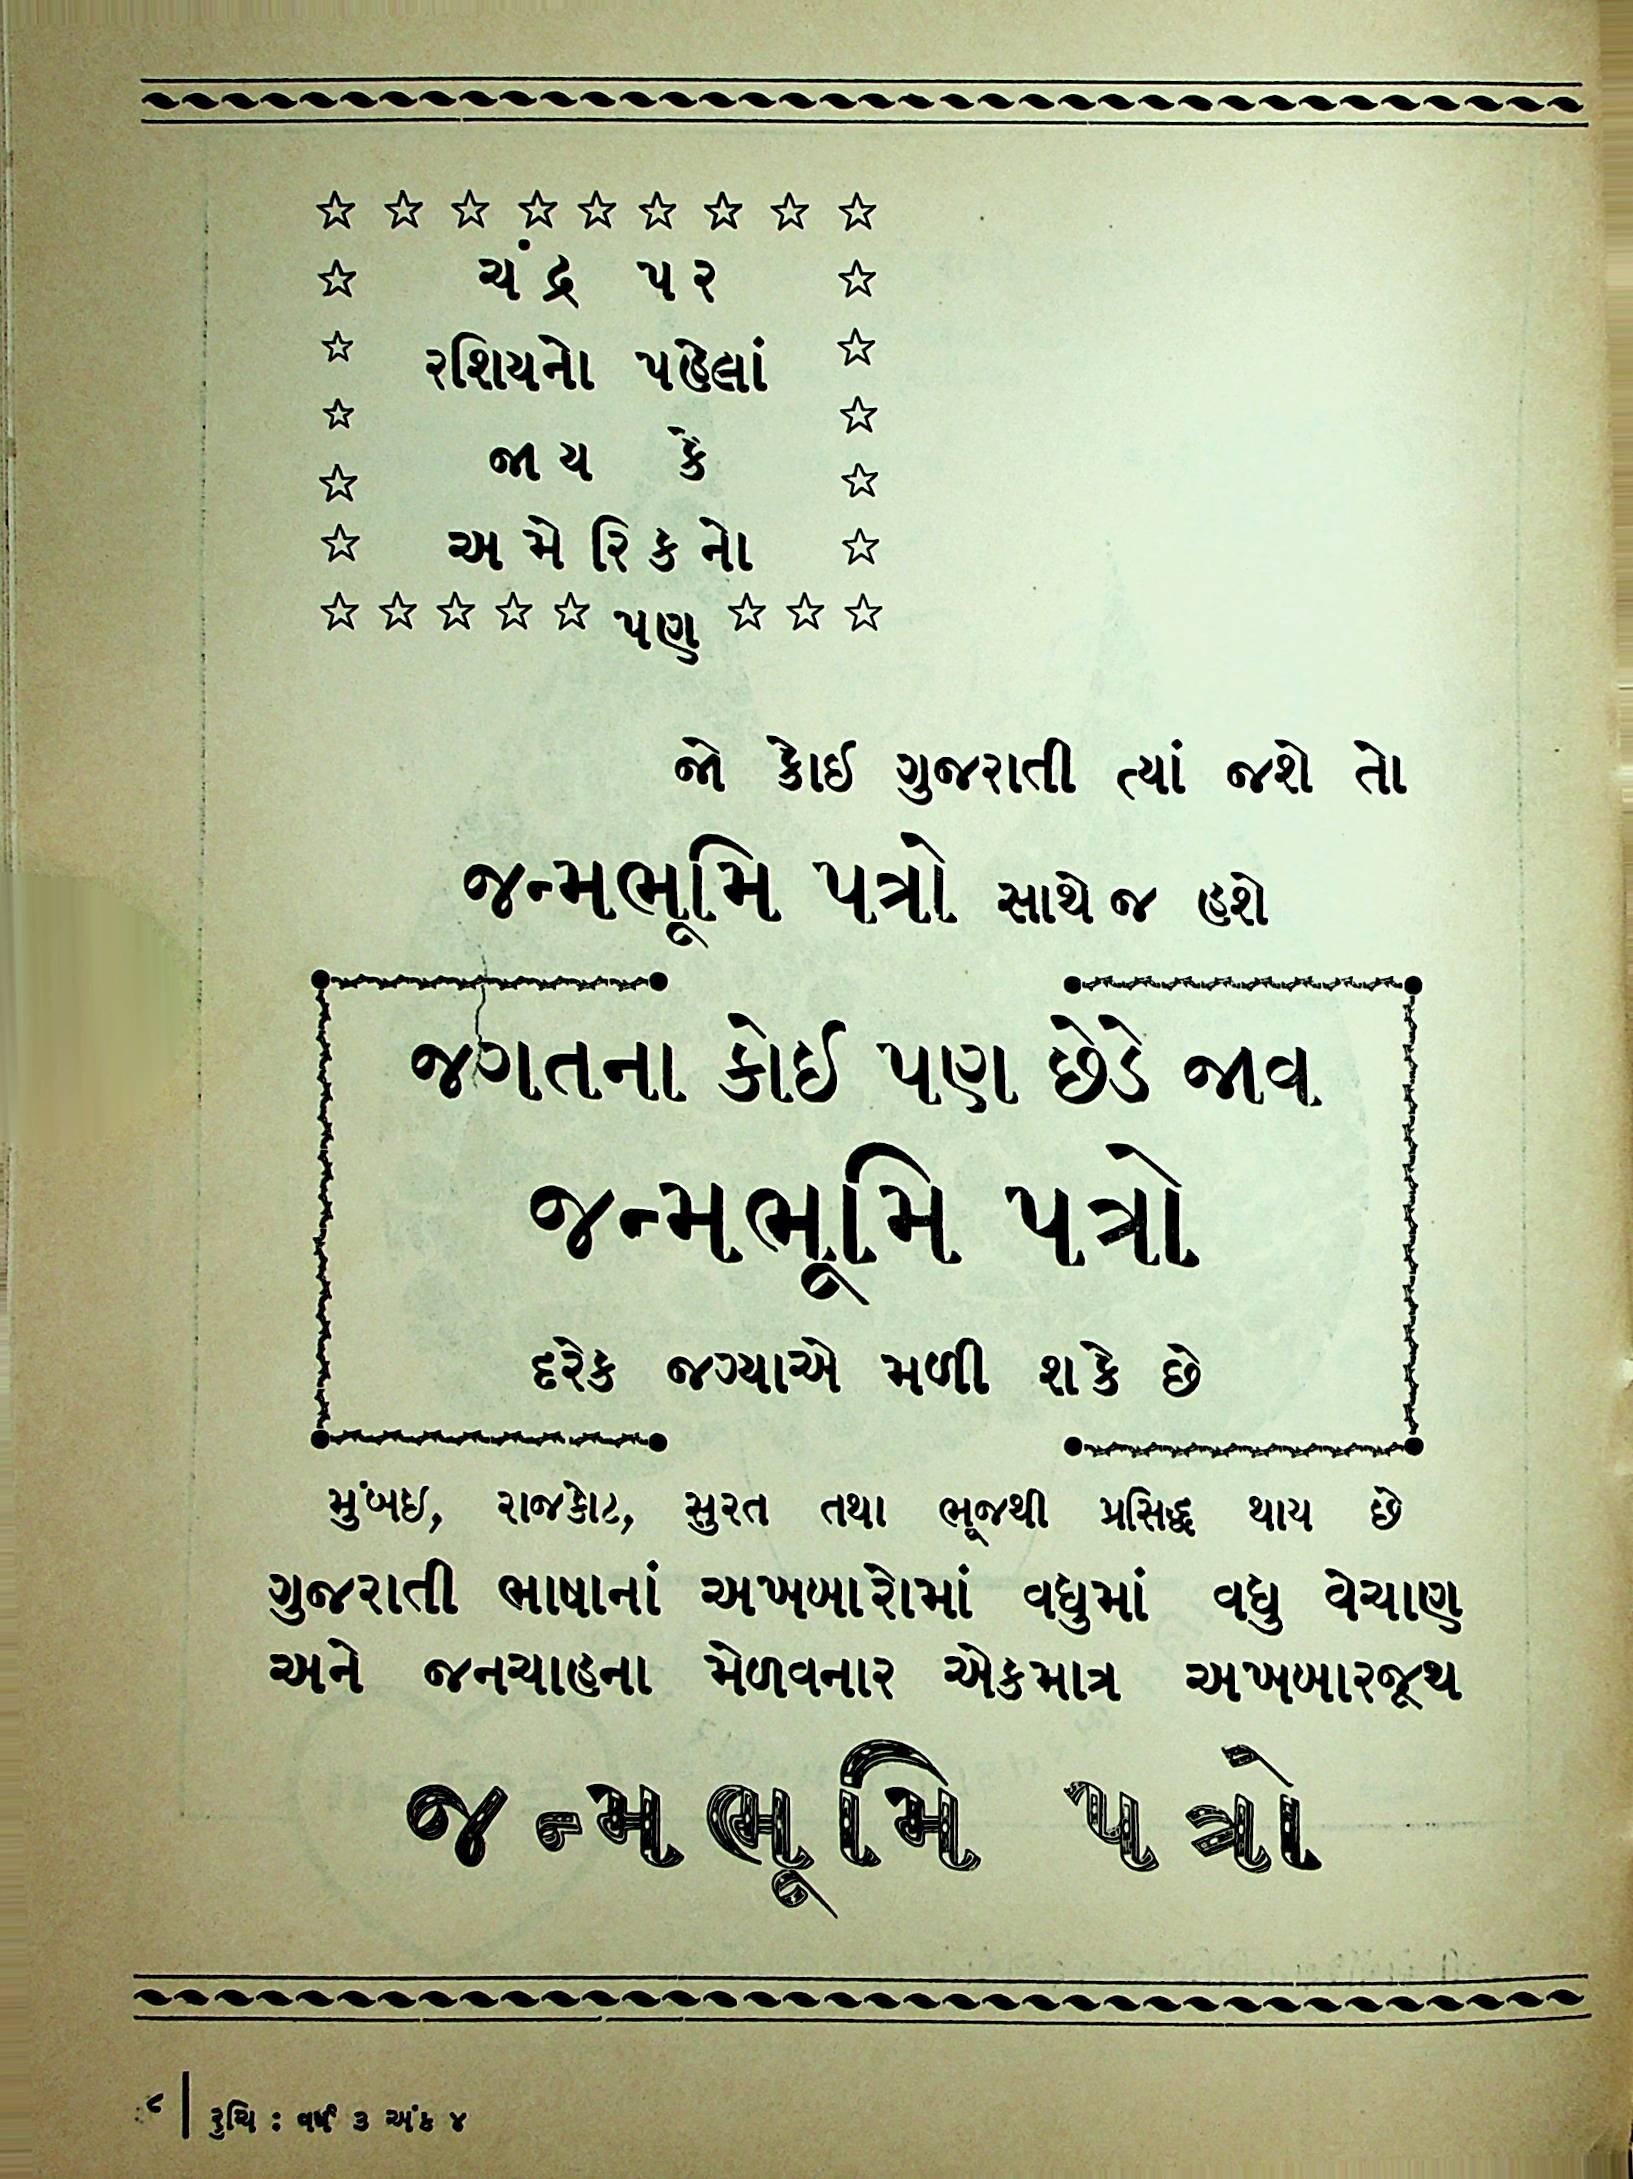 ચંદ્ર પર
રશિયનો પહેલાં
જાય કે
અમેરિકનો
પણ
જો કોઈ ગુજરાતી ત્યાં જશે તો
જન્મભૂમિ પત્રો સાથે જ હશે
જગતના કોઈ પણ છેડે જાવ
જન્મભૂમિ પત્રો
દરેક જગ્યાએ મળી શકે છે
મુંબઇ, રાજકોટ, સુરત તથા ભૂજથી પ્રસિદ્ધ થાય છે
ગુજરાતી ભાષાનાં અખબારોમાં વધુમાં વધુ વેચાણ
અને જનચાહના મેળવનાર એકમાત્ર અખબારજૂથ
જન્મભૂમિ પત્રો
૮ | રુચિ : વર્ષ ૩ અંક ૪